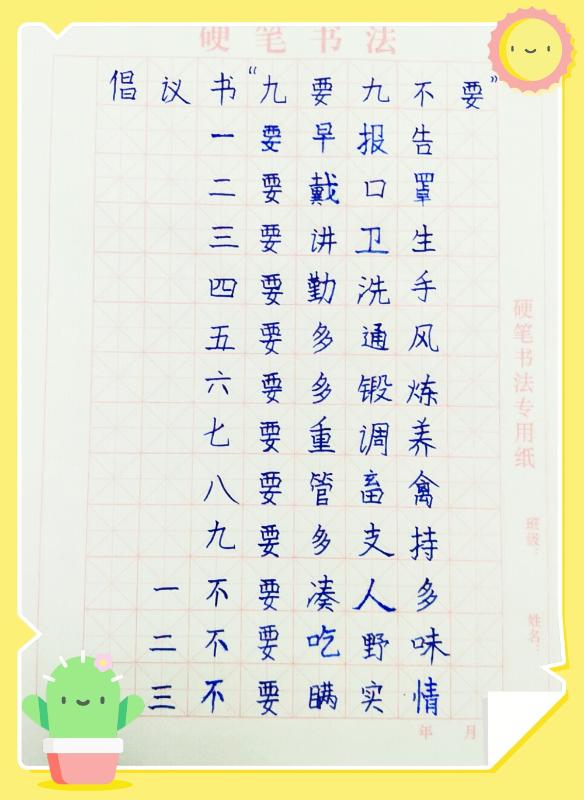 硬笔书法
倡议书“九要九不要”
一要早报告
二要戴口罩
三要讲卫生
四要勤洗手
五要多通风
六要多锻炼
七要重调养
八要管畜禽
九要多支持
一不要凑人多
二不要吃野味
三不要瞒实情
硬笔书法专用纸
班级：
姓名：
年 月